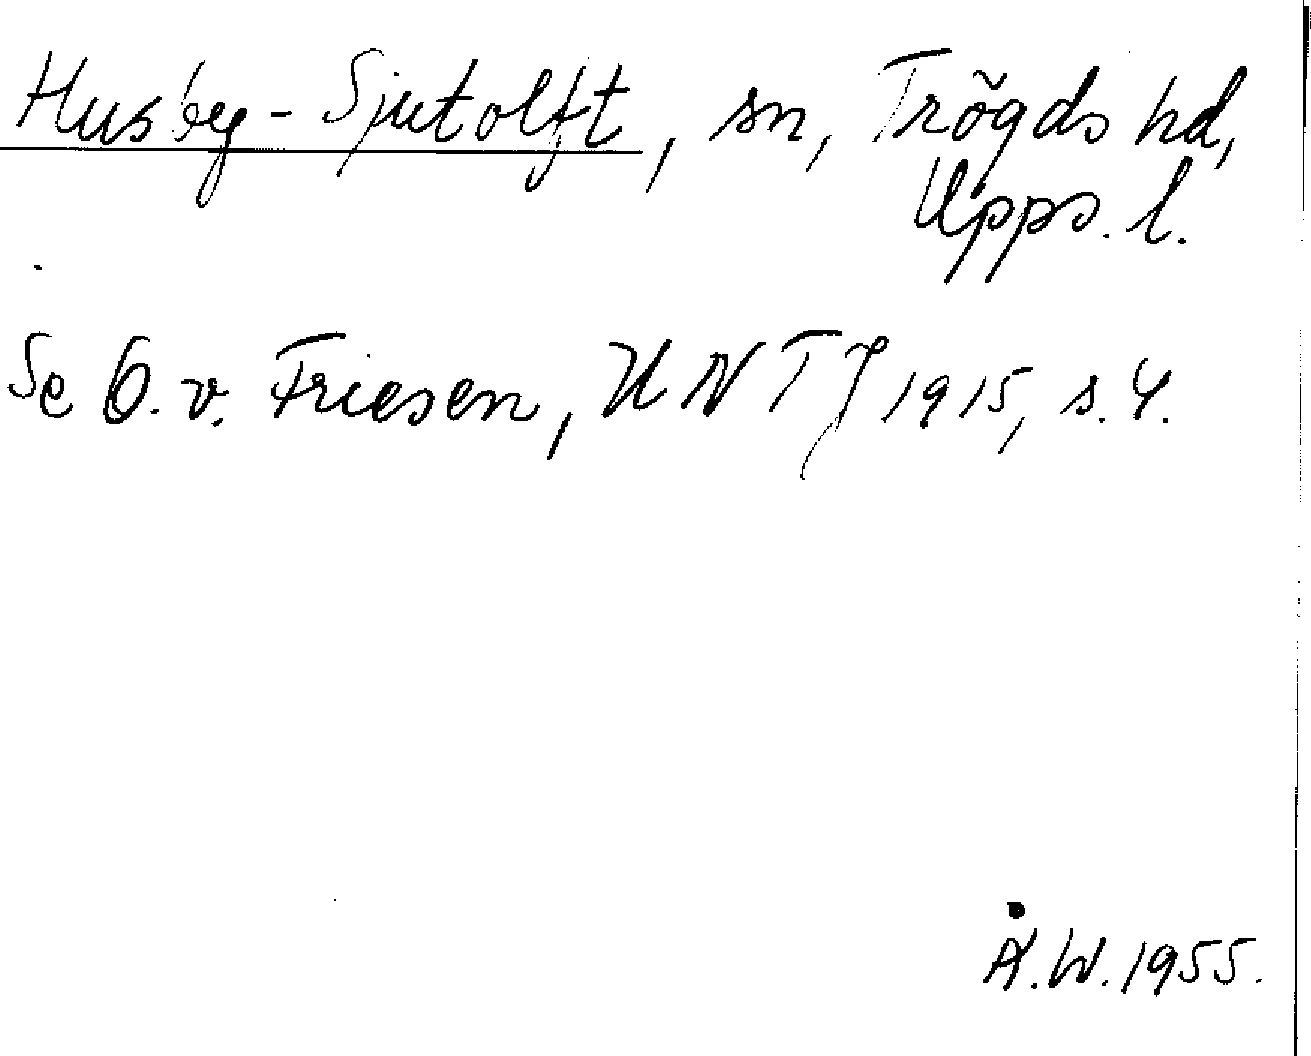 Husby-Sjutolft, sn, Trögds hd,
Upps. l.
Se O. v. Friesen, UNTJ 1915, s. 4.
Å.W. 1955.